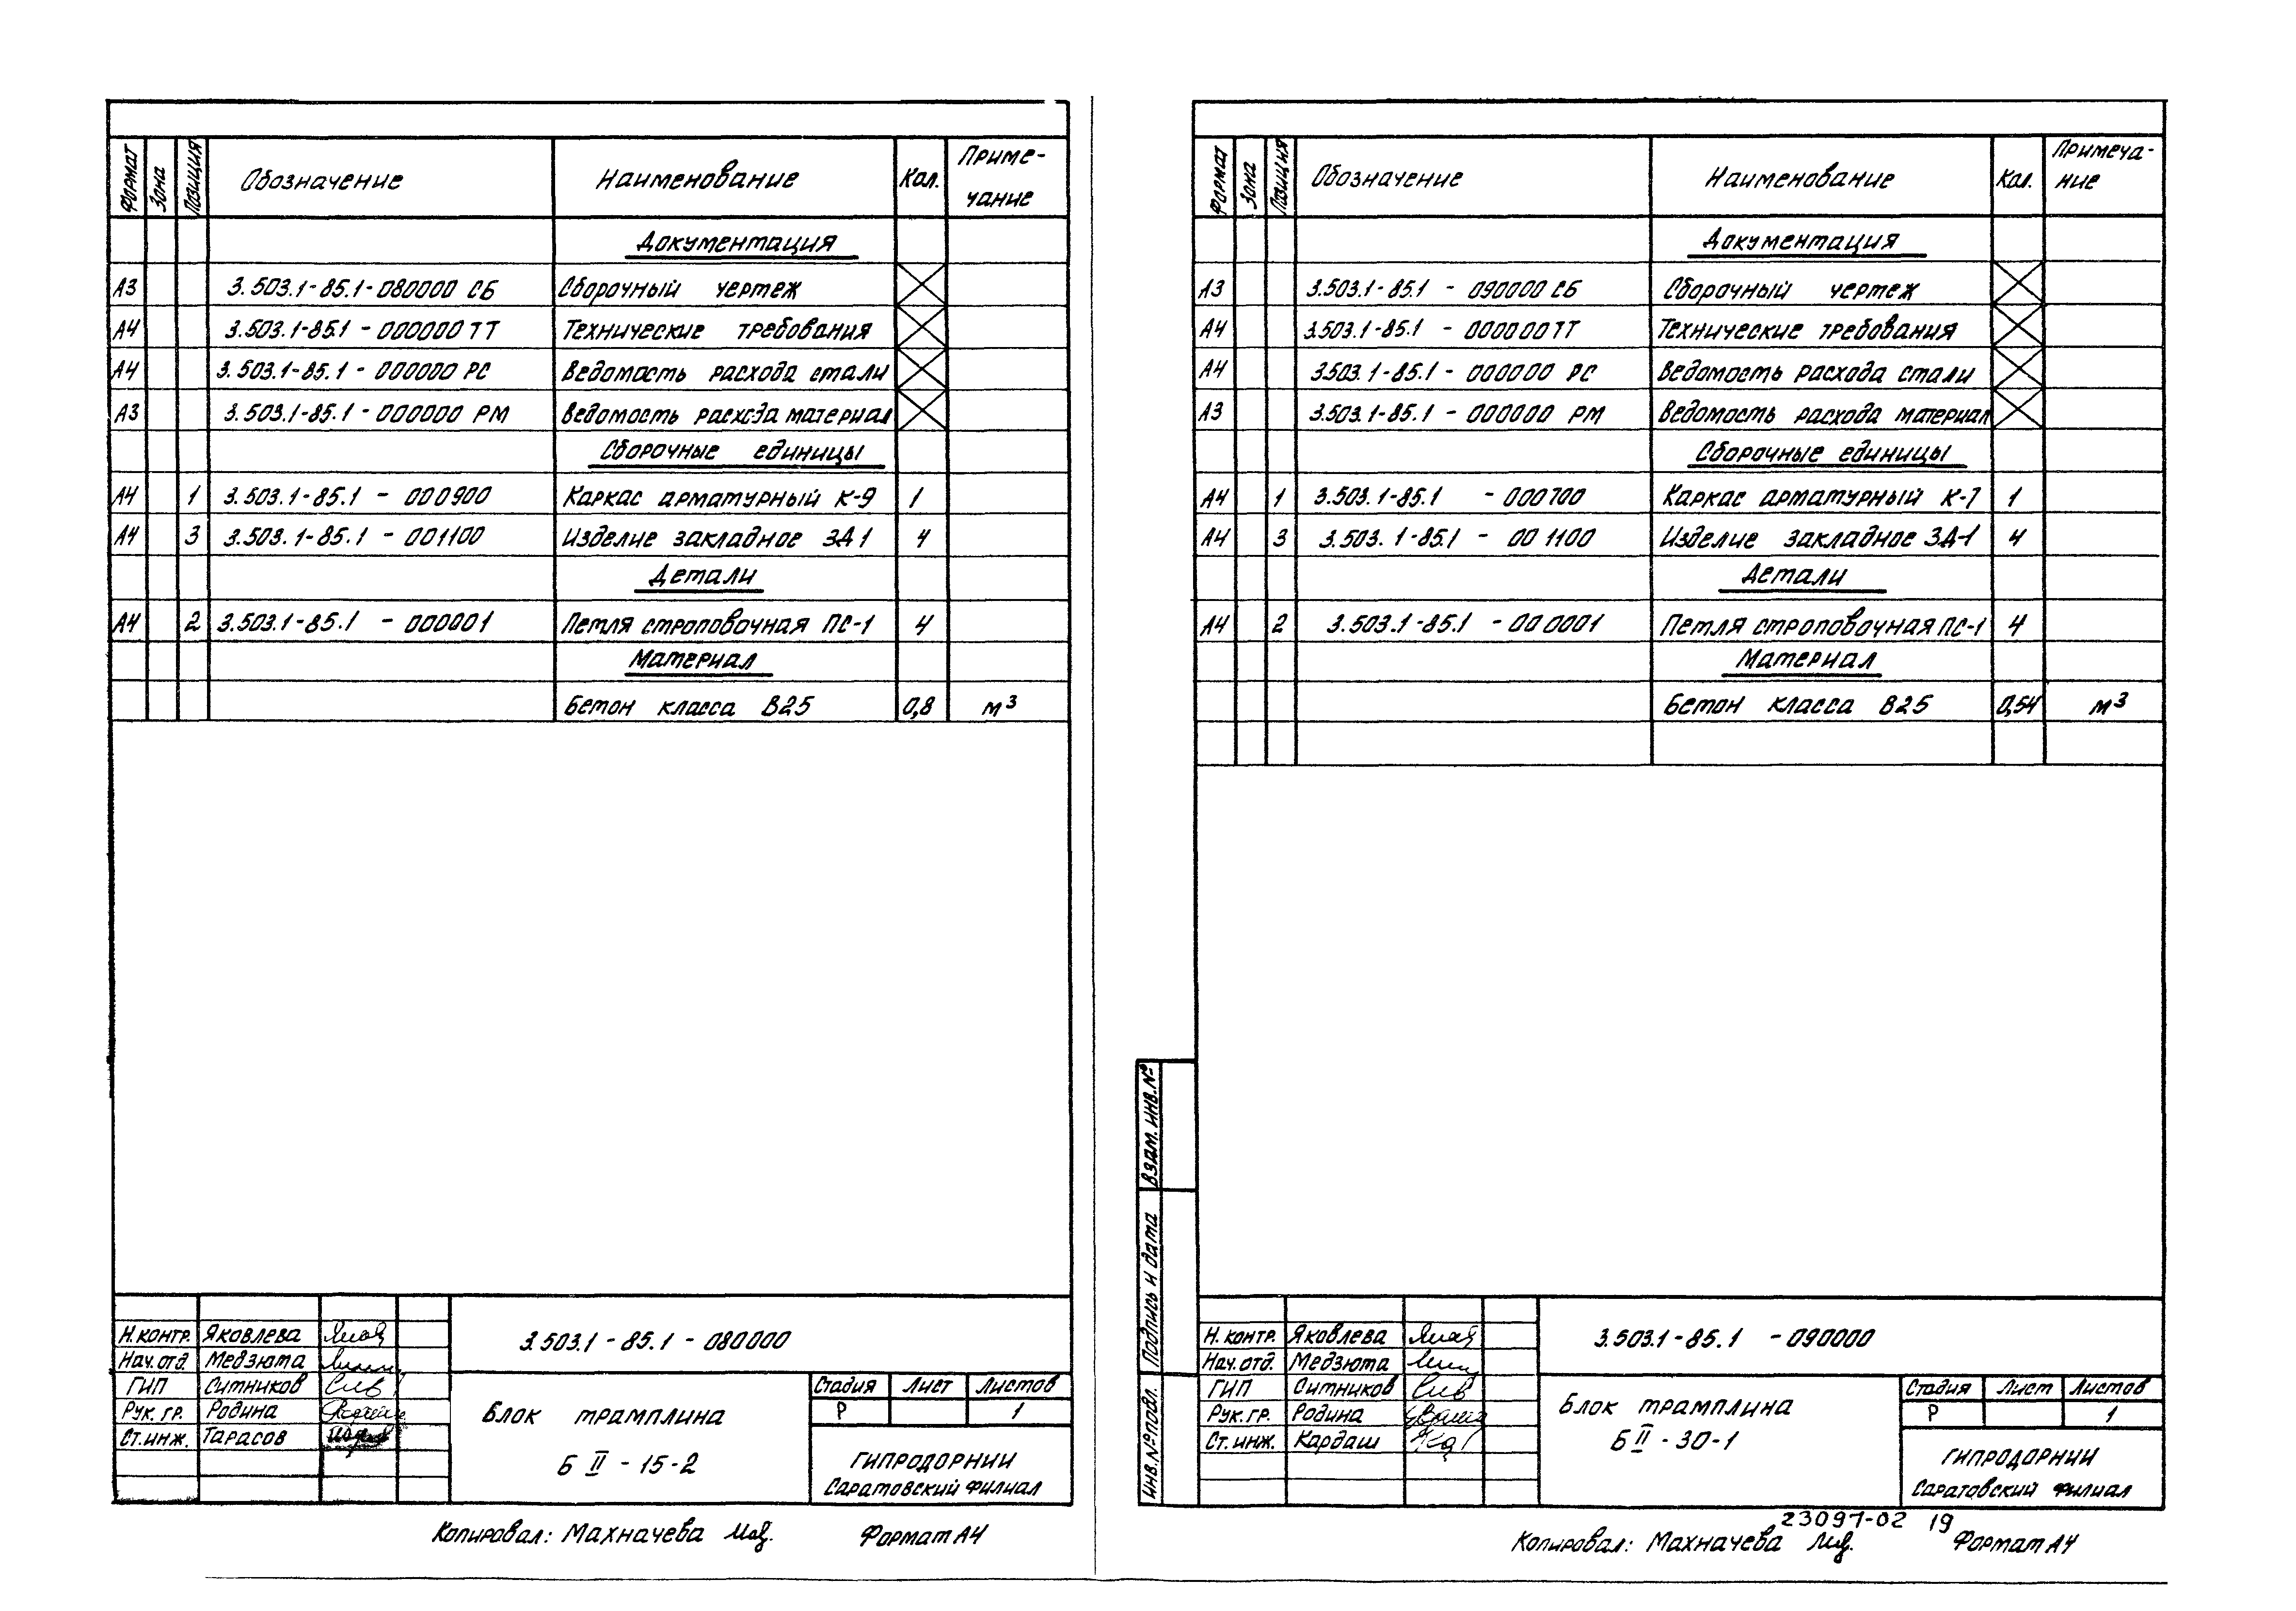 Формат Зона Позиция Обозначение Наименование Кол. Приме-
чание
Документация
А3 3.503.1-85.1-080000 СБ Сборочный чертеж
А4 3.503.1-85.1 - 000000 ТТ Технические требования
А4 3.503.1-85.1 - 000000 РС Ведомость расхода стали
А3 3.503.1-85.1 - 000000 РМ Ведомость расхода материал
Сборочные единицы
А4 1 3.503.1-85.1 - 000900 Каркас арматурный К-9 1
А4 3 3.503.1-85.1 - 001100 Изделие закладное ЗД1 4
Детали
А4 2 3.503.1-85.1 - 000001 Петля строповочная ПС-1 4
Материал
Бетон класса В25 0,8 м3
Н.контр. Яковлева
Нач.отд. Медзюта
ГИП Ситников
Рук. гр. Родина
Ст.инж. Тарасов
3.503.1 - 85.1 - 080000
Блок трамплина
Б II - 15-2
Стадия Лист Листов
Р 1
ГИПРОДОРНИИ
Саратовский филиал
Копировал: Махначева Формат А4
Формат Зона Позиция Обозначение Наименование Кол. Примеча-
ние
Документация
А3 3.503.1-85.1 - 090000 СБ Сборочный чертеж
А4 3.503.1-85.1 - 000000 ТТ Технические требования
А4 3.503.1-85.1 - 000000 РС Ведомость расхода стали
А3 3.503.1-85.1 - 000000 РМ Ведомость расхода материал
Сборочные единицы
А4 1 3.503.1-85.1 - 000700 Каркас арматурный К-7 1
А4 3 3.503.1-85.1 - 001100 Изделие закладное ЗД-1 4
Детали
А4 2 3.503.1-85.1 - 000001 Петля строповочная ПС-1 4
Материал
Бетон класса В25 0,54 м3
Взам. инв. №
Подпись и дата
Инв. № подл.
Н. контр. Яковлева
Нач. отд. Медзюта
ГИП Ситников
Рук. гр. Родина
Ст. инж. Кардаш
3.503.1-85.1 - 090000
Блок трамплина
Б II - 30-1
Стадия Лист Листов
Р 1
ГИПРОДОРНИИ
Саратовский филиал
23097-02 19
Копировал: Махначева Формат А4